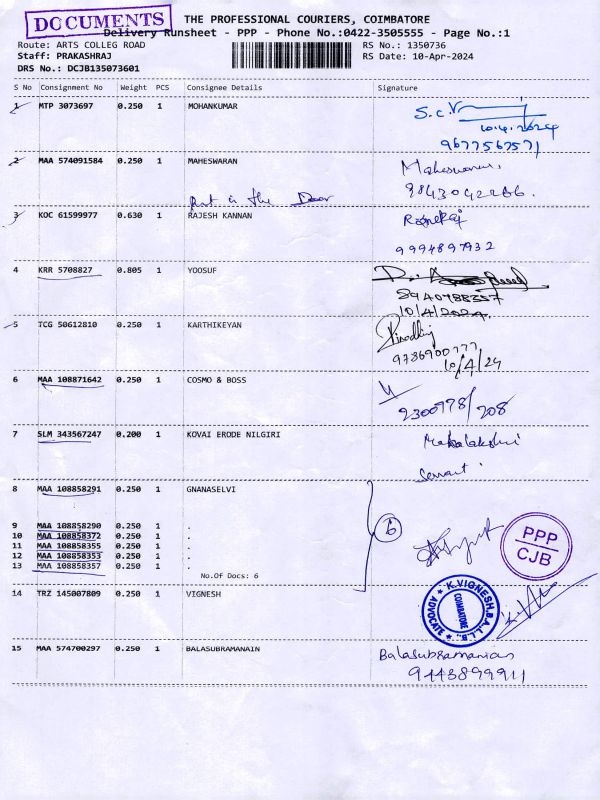 DOCUMENTS
THE PROFESSIONAL COURIERS, COIMBATORE
Delivery Runsheet - PPP - Phone No.:0422-3505555 - Page No.:1
Route: ARTS COLLEG ROAD
RS No.: 1350736
Staff: PRAKASHRAJ
RS Date: 10-Apr-2024
DRS No.: DCJB135073601
S No Consignment No Weight PCS Consignee Details Signature
1 MTP 3073697 0.250 1 MOHANKUMAR
10.4.2024
9677567571
2 MAA 574091584 0.250 1 MAHESWARAN Maheswaran.
Put in the Door
3 KOC 61599977 0.630 1 RAJESH KANNAN
9994897932
4 KRR 5708827 0.805 1 YOOSUF
10/4/2024
5 TCG 50612810 0.250 1 KARTHIKEYAN
9736900777
10/4/24
6 MAA 108871642 0.250 1 COSMO & BOSS
2300978/208
7 SLM 343567247 0.200 1 KOVAI ERODE NILGIRI
8 MAA 108858291 0.250 1 GNANASELVI
6
9 MAA 108858290 0.250 1 .
10 MAA 108858372 0.250 1 .
11 MAA 108858355 0.250 1 .
12 MAA 108858353 0.250 1 .
13 MAA 108858357 0.250 1 .
No.Of Docs: 6
PPP
CJB
14 TRZ 145007809 0.250 1 VIGNESH
K.VIGNESH,B.A.,L.L.B.,
COIMBATORE
ADVOCATE
15 MAA 574700297 0.250 1 BALASUBRAMANAIN Balasubramanian
9443899911